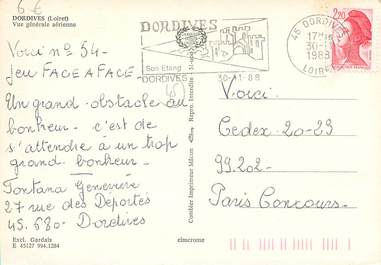 6 €
DORDIVES (Loiret)
Vue générale aérienne
Voici n° 54-
jeu FACE A FACE-
Un grand obstacle au
bonheur - c'est de
s'attendre à un trop
grand bonheur-
Fontana Geneviève
27 rue des Déportés
45.680- Dordives
Excl. Gardais
E 45127 994.1284
Combier Imprimeur Mâcon
Reprod. Interdite
cimcrome
DORDIVES
Son Etang
DORDIVES
(45)
30-11-88
45 DORDIVES
17H
30-11
1988
LOIRET
2,20
Voici
Cedex 20-29
99.202-
Paris Concours-